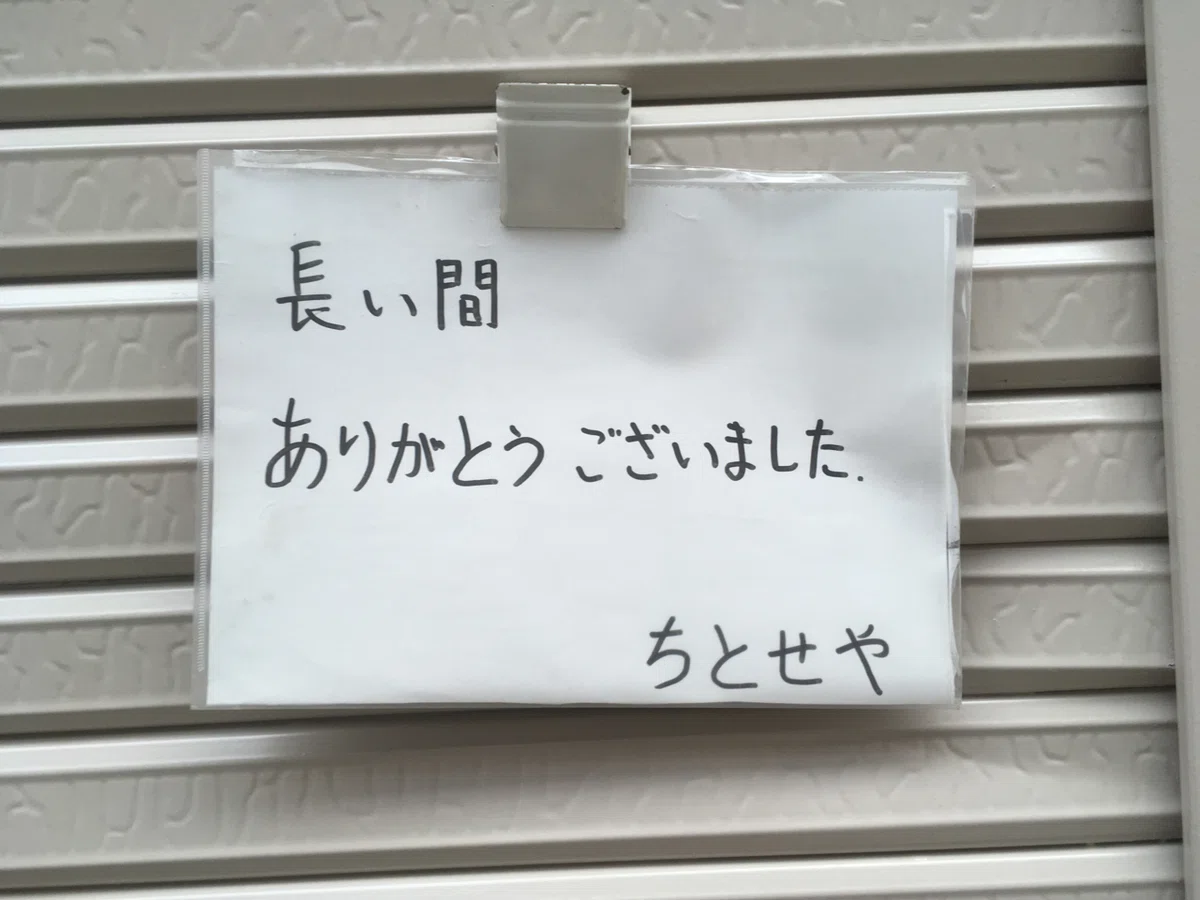 長い間
ありがとうございました.
ちとせや